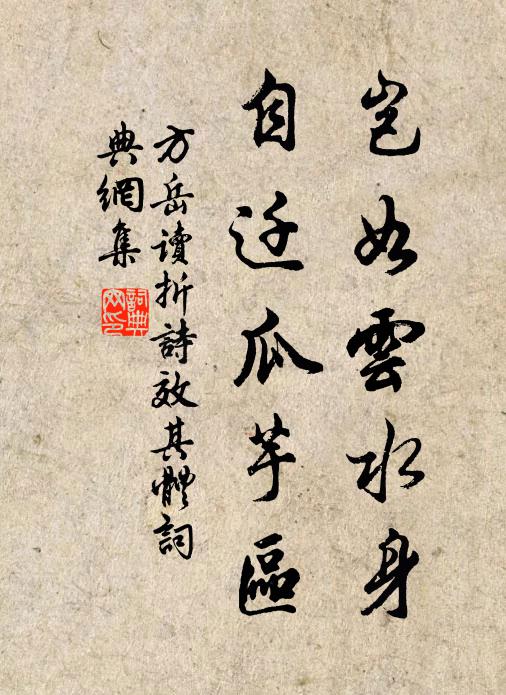 岂如雲水身
自迁瓜芋區
方岳讀折詩效其體詞
典網集
詞典
网印